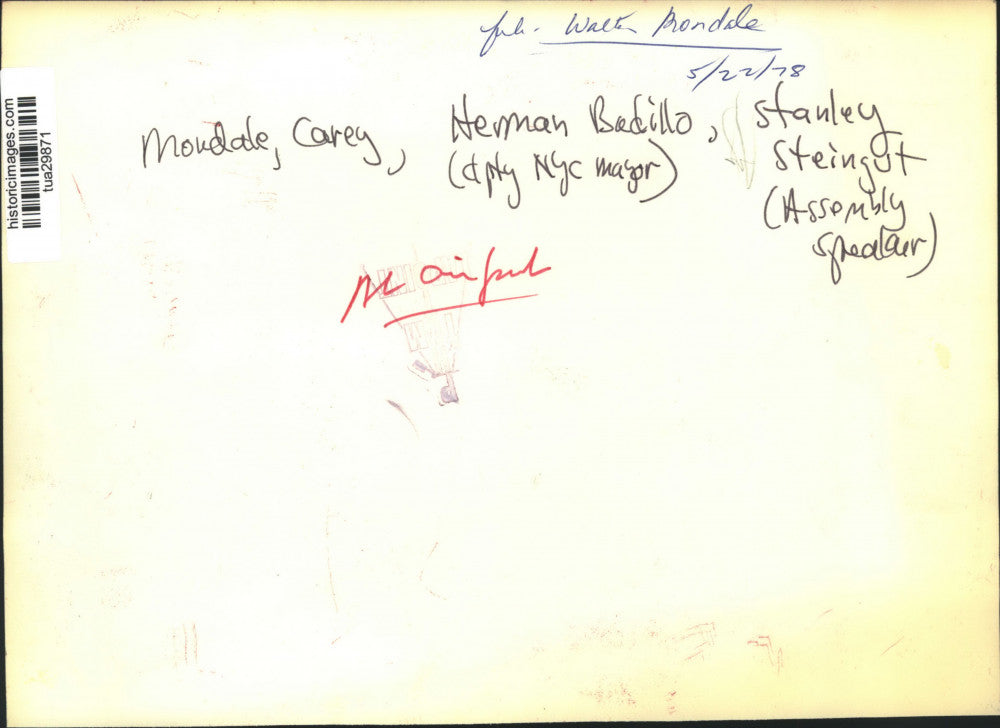 Walter Mondale
5/22/78
Mondale, Carey, Herman Badillo, Stanley
(dpty NYC mayor) Steingut
(Assembly
speaker)
at airport
historicimages.com
tua29871